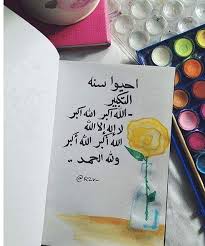 احيوا سنه
التكبير
- الله أكبر الله أكبر
لا إله إلا الله
الله أكبر الله أكبر
ولله الحمد ..